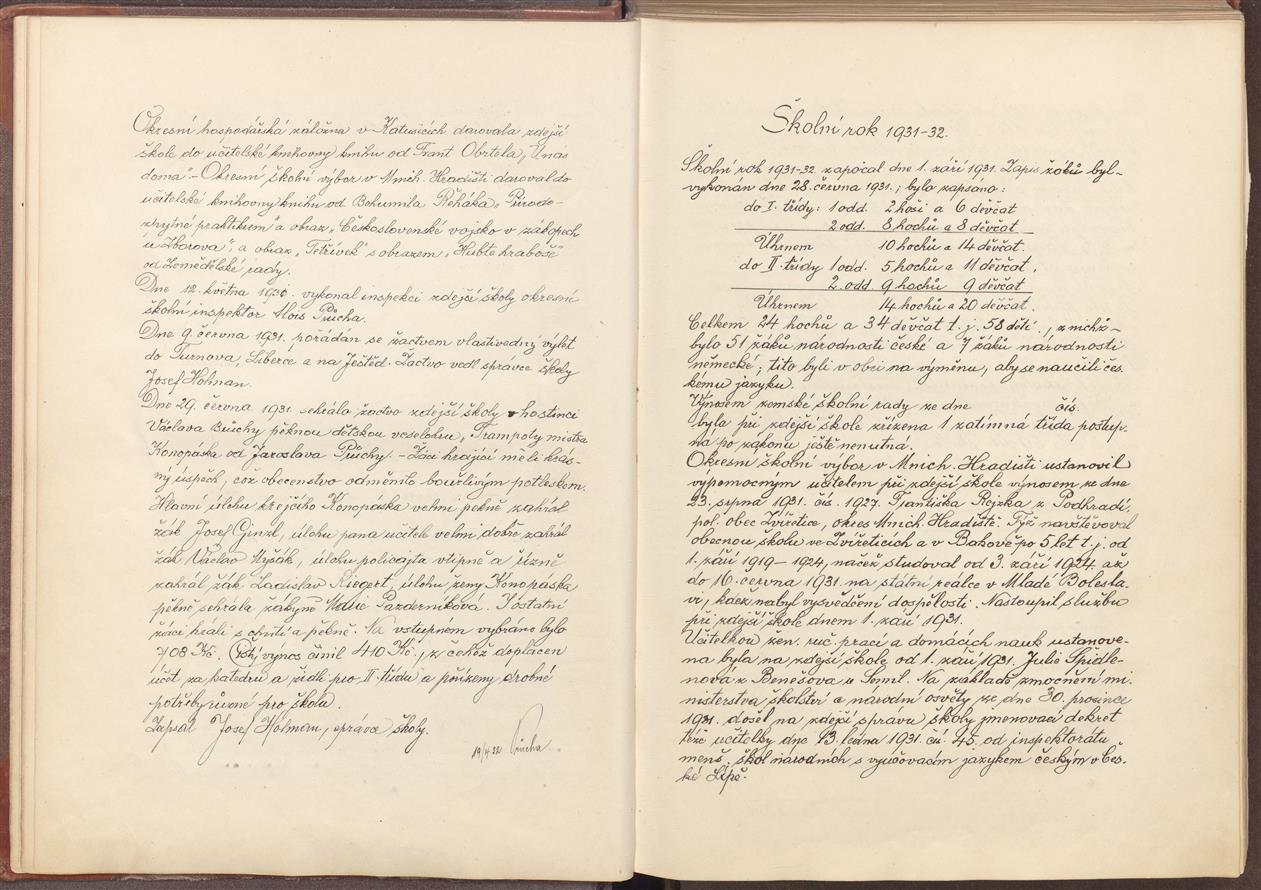 Okresní hospodářská záložna v Katusicích darovala zdejší
škole do učitelské knihovny knihu od Frant. Obrtela, „U nás
doma“. – Okresní školní výbor v Mnich. Hradišti daroval do
učitelské knihovny knihu od Bohumila Řeháka „Přírodo-
zpytné praktikum“ a obraz „Československé vojsko v zákopech
u Zborova“, a obraz „Tetřívek“ s obrazem „Hubte hraboše“
od Zemědělské rady.
Dne 12. května 1931. vykonal inspekci zdejší školy okresní
školní inspektor Alois Průcha.
Dne 9. června 1931. pořádán se žactvem vlastivědný výlet
do Turnova, Liberce a na Ještěd. Žactvo vedl správce školy
Josef Holman.
Dne 29. června 1931. sehrálo žactvo zdejší školy v hostinci
Václava Bruchy pěknou dětskou veselohru „Trampoty mistra
Konopáska od Jaroslava Průchy. – Žáci hrající měli krás-
ný úspěch, což obecenstvo odměnilo bouřlivým potleskem.
Hlavní úlohu krejčího Konopáska velmi pěkně zahrál
žák Josef Ginzl, úlohu pana učitele velmi dobře zahrál
žák Václav Myšák, úlohu policajta vtipně a řízně
zahrál žák Ladislav Riegert, úlohu ženy Konopáska
pěkně sehrála žákyně Marie Pazderníková. I ostatní
žáci hráli s chutí a pěkně. Na vstupném vybráno bylo
708 Kč. Čistý výnos činil 410 Kč., z čehož doplacen
účet za katedru a židli pro II. třídu a pořízeny drobné
potřeby různé pro školu.
Zapsal Josef Holman, správce školy.
19/4 32 Průcha
Školní rok 1931-32.
Školní rok 1931-32 započal dne 1. září 1931. Zápis žáků byl
vykonán dne 28. června 1931.; bylo zapsáno:
do I. třídy: 1 odd. 2 hoši a 6 děvčat
2 odd. 8 hochů a 8 děvčat
Úhrnem 10 hochů a 14 děvčat.
do II. třídy 1 odd. 5 hochů a 11 děvčat,
2. odd. 9 hochů 9 děvčat
Úhrnem 14 hochů a 20 děvčat.
Celkem 24 hochů a 34 děvčat t. j. 58 dětí., z nichž
bylo 51 žáků národnosti české a 7 žáků národnosti
německé; tito byli v obci na výměnu, aby se naučili čes-
kému jazyku.
Výnosem zemské školní rady ze dne čís.
byla při zdejší škole zřízena 1 zatímná třída postup.
ná po zákonu ještě nenutná.
Okresní školní výbor v Mnich. Hradišti ustanovil
výpomocným učitelem při zdejší škole výnosem ze dne
23. srpna 1931. čís. 1927. Františka Rejzka z Podhradí,
pol. obec Zvířetice, okres Mnich. Hradiště. Týž navštěvoval
obecnou školu ve Zvířeticích a v Bakově po 5 let t. j. od
1. září 1919 – 1924, načež studoval od 3. září 1924 až
do 16. června 1931 na státní reálce v Mladé Bolesla-
vi, kdež nabyl vysvědčení dospělosti. Nastoupil službu
při zdejší škole dnem 1. září 1931.
Učitelkou žen. ruč. prací a domácích nauk ustanove-
na byla na zdejší škole od 1. září 1931. Julie Špidle-
nová z Benešova u Semil. Na základě zmocnění mi-
nisterstva školství a národní osvěty ze dne 30. prosince
1931. došel na zdejší správu školy jmenovací dekret
téže učitelky dne 13. ledna 1931. čís. 45. od inspektorátu
menš. škol národních s vyučovacím jazykem českým v Čes-
ké Lípě.